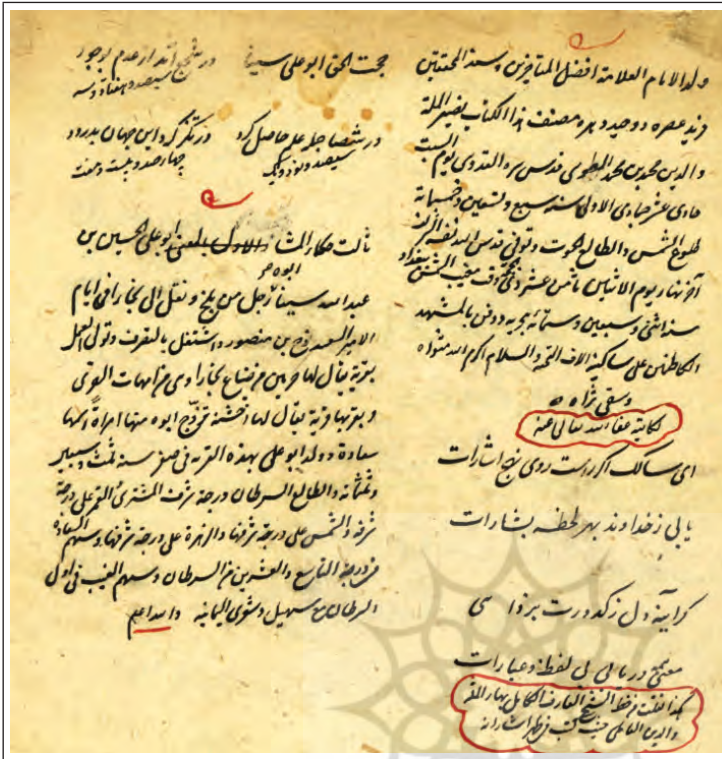 ولد الامام العلامة افضل المتاخرین و سند المحققین
فرید عصره و وحید دهره مصنف هذا الکتاب نصیر الملة
و الدین محمد بن محمد الطوسی قدس سره القدوسی یوم السبت
حادی عشر جمادی الاولی سنه سبع و تسعین و خمسمائة
طلوع الشمس و الطالع الحوت و توفی قدس الله نفسه
آخر نهار یوم الاثنین ثامن عشر وقت مغیب الشمس ببغداد
سنه اثنی و سبعین و ستمائة و دفن بالمشهد
الکاظمی علی ساکنیه الاف التحیة و السلام اکرم الله مثواه
و سقی ثراه
لکاتبه عفا الله تعالی عنه
ای سالک اگر راست روی نهج اشارات
یابی ز خداوند بهر لحظه بشارات
گر آینه دل ز کدورت بزدا سی
معنی در یابی بی لفظ و عبارات
هکذا نقلت من خط الشیخ العارف الکامل بهاء الملة
و الدین العاملی
حجت الحق ابو علی سینا در شجع آمد از عدم بوجود
سیصد و هفتاد و سه
در شصا جمله علم حاصل کرد در تکز کرد این جهان بدرود
سیصد و نود و یک چهارصد و بیست و هفت
ثالث حکماء المشا ابو علی الحسین بن
عبد الله سینا ابوه رجل من بلخ و نقل الی بخارا فی ایام
الامیر السعید نوح بن منصور و اشتغل بالتصرف و تولی العمل
بقریة یقال لها خرمیثن من ضیاع بخارا و هی من امهات القری
و بقربها قریة یقال لها افشنه تزوج ابوه منها امراة اسمها
ستارة و ولد ابو علی بهذه القریه فی صفر سنه ثلث و سبعین
و ثلثمائه و الطالع السرطان درجة شرف المشتری و القمر علی درجة
شرفه و الشمس علی درجة شرفها و الزهرة علی درجة شرفها و سهم السعاده
فی درجة التاسع و العشرین من السرطان و سهم الغیب فی اول
السرطان مع سهیل و شعری الیمانیه والله اعلم